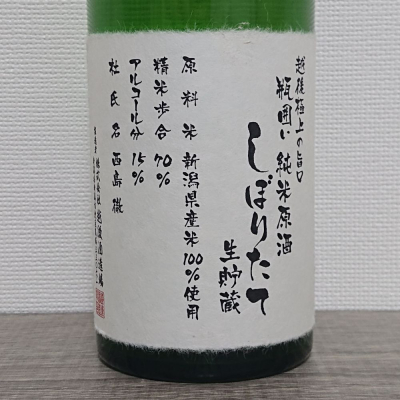 越後極上の旨口
瓶囲い純米原酒
しぼりたて
生貯蔵
原料米 新潟県産米100%使用
精米歩合 70%
アルコール分 15%
杜氏名 西島徹